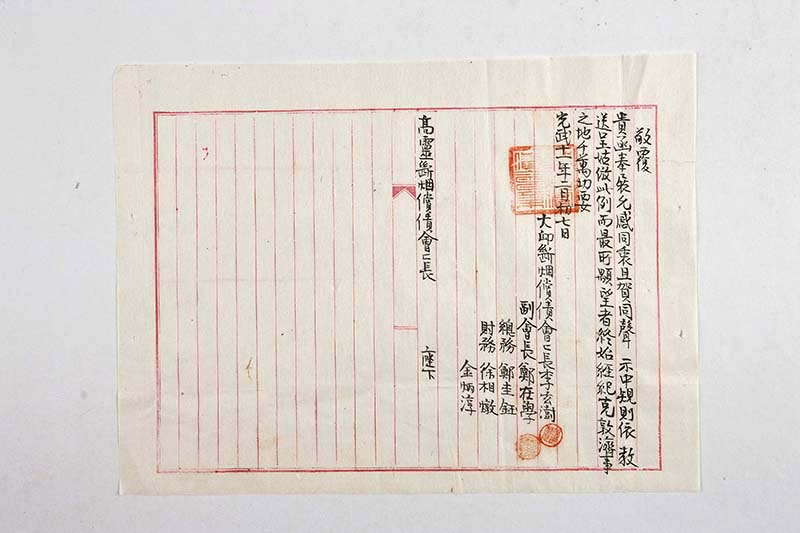 敬覆
貴函奉裝尤感同裏且賀同聲 示中規則依 教
送呈姑倣此例而最所顒望者終始經紀克敦濟事
之地千萬切要
光武十一年二月初七日
大邱斷烟償債會會長李玄澍
副會長鄭在學
總務 鄭圭鈺
財務 徐相燉
金炳淳
高靈斷烟償債會會長 座下